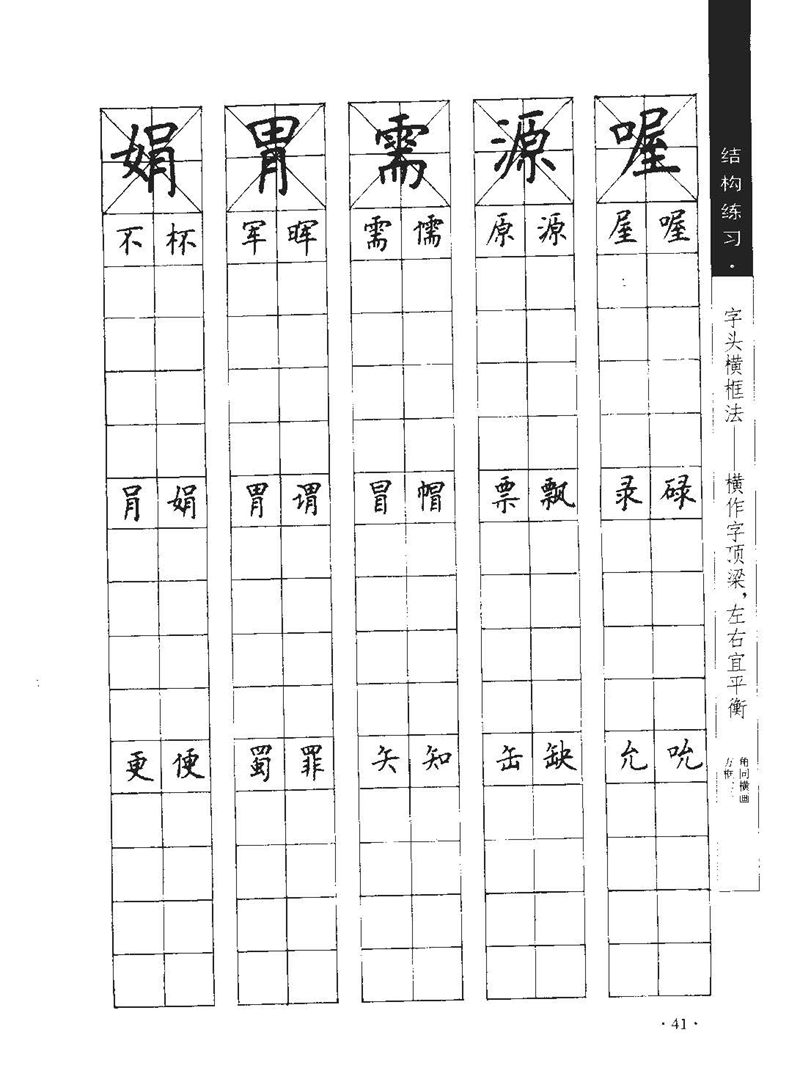 娟 胃 需 源 喔
不 杯 军 晖 需 懦 原 源 屋 喔
肙 娟 胃 谓 冒 帽 票 飘 录 碌
更 便 蜀 罪 矢 知 缶 缺 允 吮
结构练习·
字头横框法——横作字顶梁，左右宜平衡
·41·